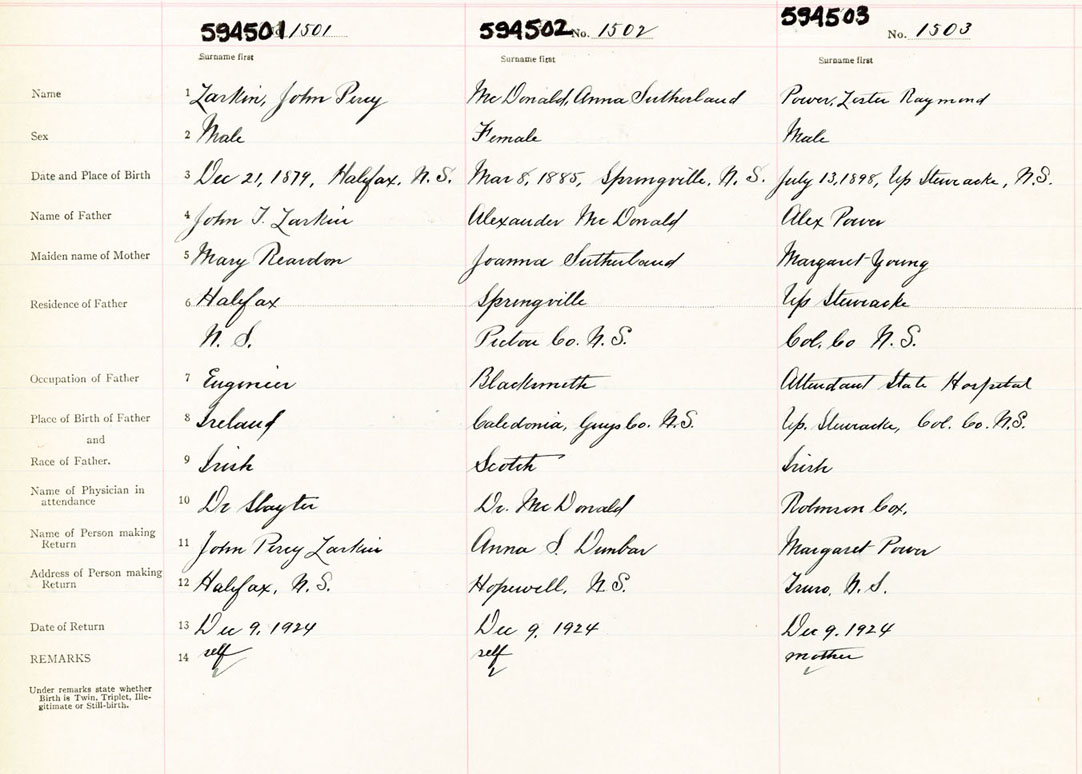 594501 1501 594502 No. 1502 594503 No. 1503
Surname first Surname first Surname first
Name 1 Larkin, John Percy McDonald, Anna Sutherland Power, Lester Raymond
Sex 2 Male Female Male
Date and Place of Birth 3 Dec 21, 1879, Halifax, N.S. Mar 8, 1885, Springville, N.S. July 13, 1898, Up Stewiacke, N.S.
Name of Father 4 John T. Larkin Alexander McDonald Alex Power
Maiden name of Mother 5 Mary Reardon Joanna Sutherland Margaret Young
Residence of Father 6 Halifax Springville Up Stewiacke
N. S. Pictou Co. N.S. Col. Co N.S.
Occupation of Father 7 Engineer Blacksmith Attendant State Hospital
Place of Birth of Father 8 Ireland Caledonia, Guys Co. N.S. Up. Stewiacke, Col. Co. N.S.
and
Race of Father. 9 Irish Scotch Irish
Name of Physician in
attendance 10 Dr Slayter Dr. McDonald Robinson Cox.
Name of Person making
Return 11 John Percy Larkin Anna S. Dunbar Margaret Power
Address of Person making
Return 12 Halifax, N.S. Hopewell, N.S. Truro, N.S.
Date of Return 13 Dec 9, 1924 Dec 9, 1924 Dec 9, 1924
REMARKS 14 self self mother
Under remarks state whether
Birth is Twin, Triplet, Ille-
gitimate or Still-birth.